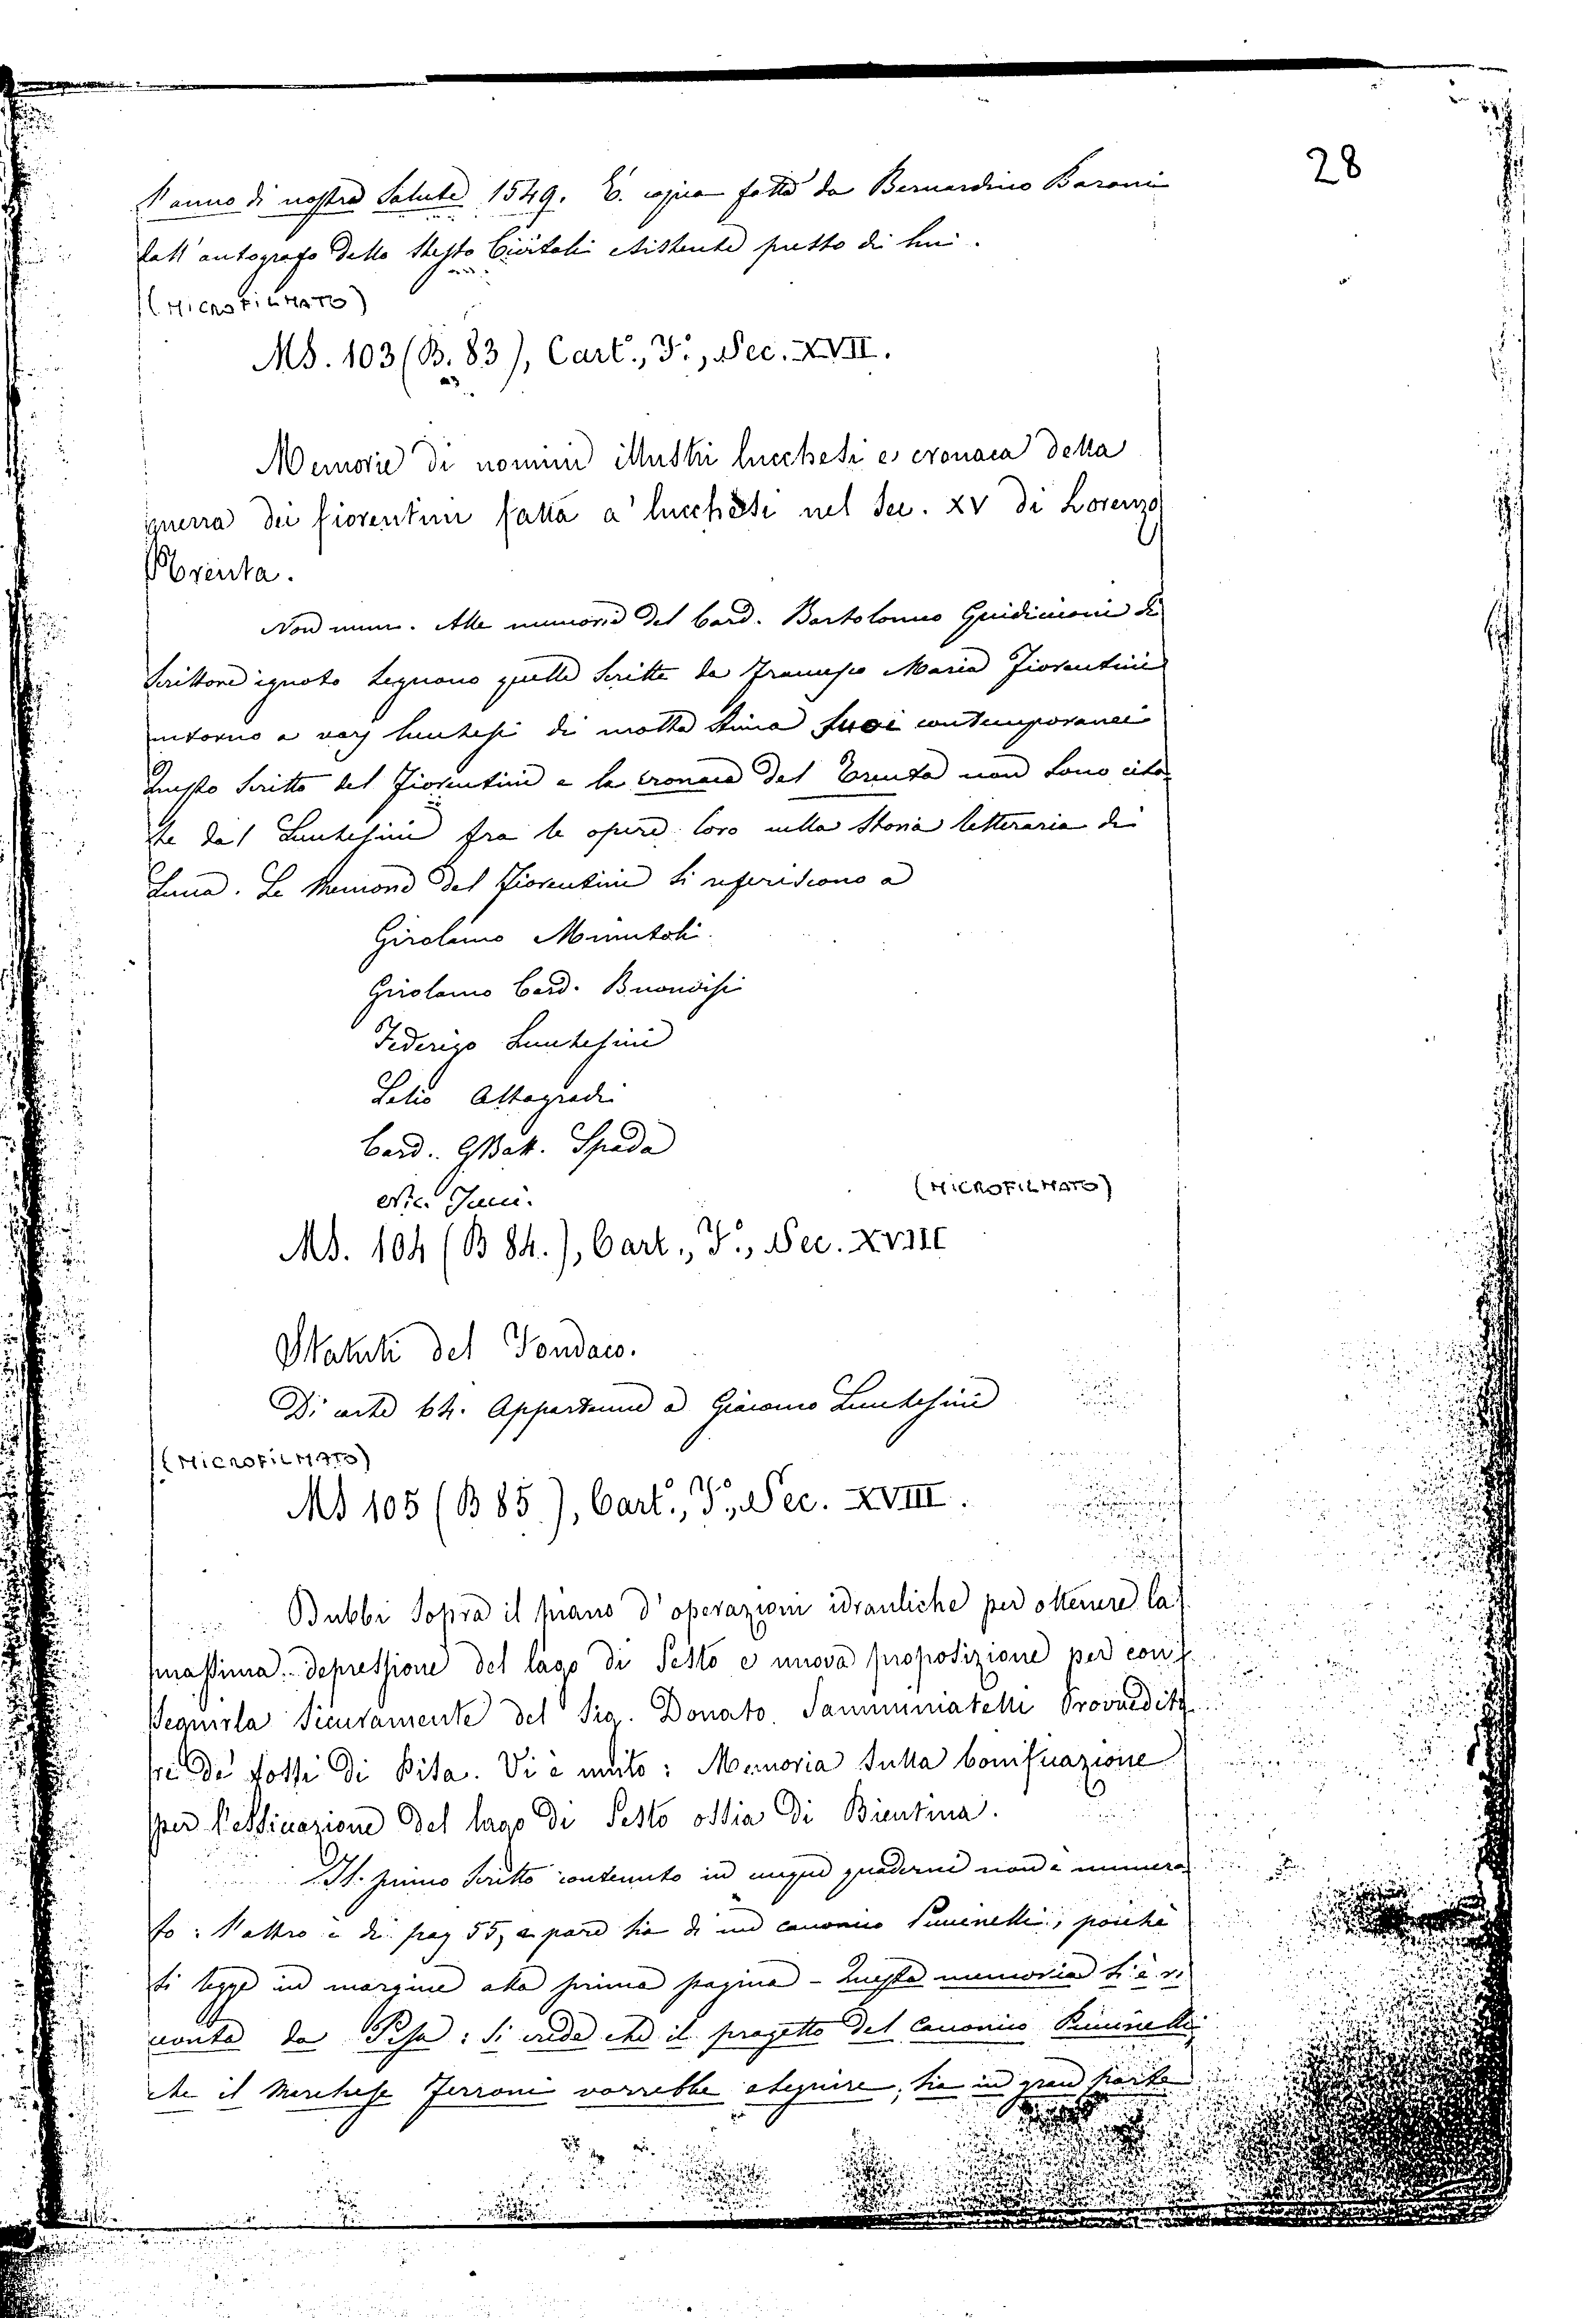 28
l'anno di nostra salute 1549. È copia fatta da Bernardino Baroni
dall'autografo dello stesso Civitali esistente presso di lui.
(MICROFILMATO)
MS. 103 (B. 83), Cart., F.°, Sec. XVII.
Memorie di uomini illustri lucchesi e cronaca della
guerra dei fiorentini fatta a' lucchesi nel Sec. XV di Lorenzo
Trenta.
Non num. Alle memorie del Card. Bartolomeo Guidiccioni di
scrittore ignoto seguono quelle scritte da Francesco Maria Fiorentini
intorno a varj lucchesi di molta stima suoi contemporanei
Questo scritto del Fiorentini e la cronaca del Trenta non sono cita
te dal Lucchesini fra le opere loro nella storia letteraria di
Lucca. Le memorie del Fiorentini si riferiscono a
Girolamo Minutoli
Girolamo Card. Buonvisi
Federigo Lucchesini
Lelio Altogradi
Card. GBatt. Spada
(MICROFILMATO)
MS. 104 (B 84.), Cart., F.°, Sec. XVIII
Statuti del Fondaco.
Di carte 64. Appartenne a Giacomo Lucchesini
(MICROFILMATO)
MS 105 (B 85), Cart., F.°, Sec. XVIII.
Dubbi sopra il piano d'operazioni idrauliche per ottenere la
massima depressione del lago di Sesto e nuova proposizione per con
seguirla sicuramente del Sig. Donato Samminiatelli Provvedito
re de' fossi di Pisa. Vi è unito: Memoria sulla bonificazione
per l'essicazione del lago di Sesto ossia di Bientina.
Il primo scritto contenuto in cinque quaderni non è numera
to: l'altro è di pag 55, e pare sia di un canonico Pucinelli, poichè
si legge in margine alla prima pagina - Questa memoria si è ri
cevuta da Pisa: si crede che il progetto del Canonico Pucinelli
che il Marchese Ferroni vorrebbe eseguire, sia in gran parte